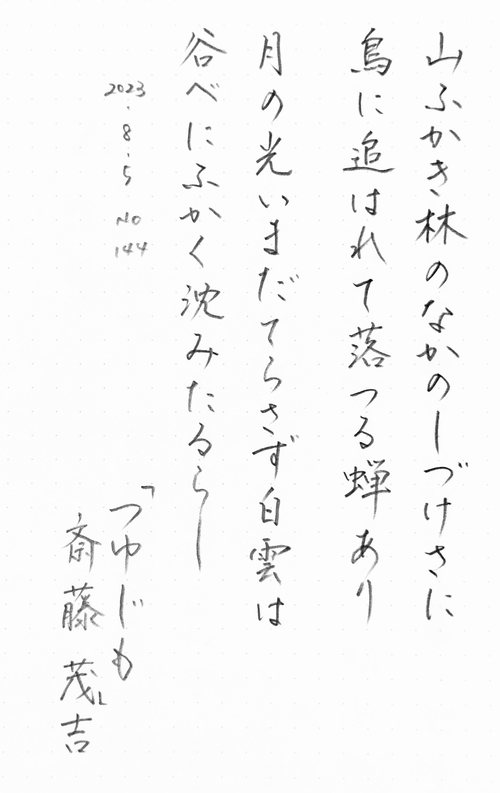 山ふかき林のなかのしづけさに
鳥に追はれて落つる蝉あり
月の光いまだてらさず白雲は
谷べにふかく沈みたるらし
2023.8.5 No 144
「つゆじも」
斎藤茂吉